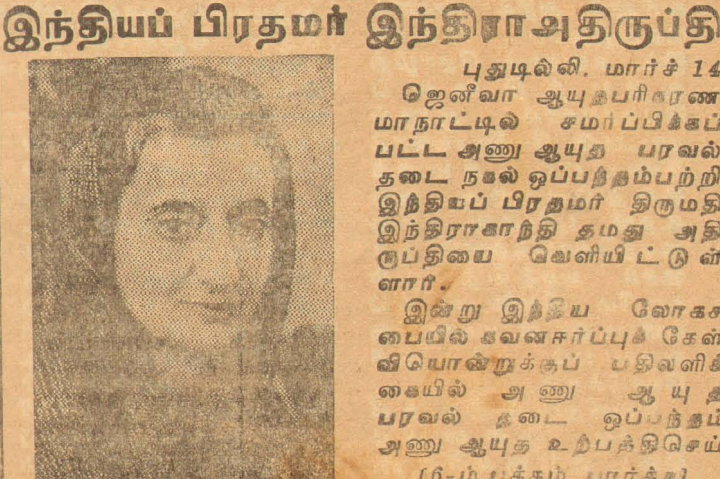 இந்தியப் பிரதமர் இந்திரா அதிருப்தி
புதுடில்லி, மார்ச் 14
ஜெனீவா ஆயுதபரிகரண
மாநாட்டில் சமர்ப்பிக்கப்
பட்ட அணு ஆயுத பரவல்
தடை நகல் ஒப்பந்தம்பற்றி
இந்தியப் பிரதமர் திருமதி
இந்திராகாந்தி தமது அதி
ருப்தியை வெளியிட்டுள்
ளார்.
இன்று இந்திய லோகச
பையில் கவனஈர்ப்புக் கேள்
வியொன்றுக்குப் பதிலளிக்
கையில் அணு ஆயுத
பரவல் தடை ஒப்பந்தம்
அணு ஆயுத உற்பத்திசெய்
(6-ம் பக்கம் பார்க்க)